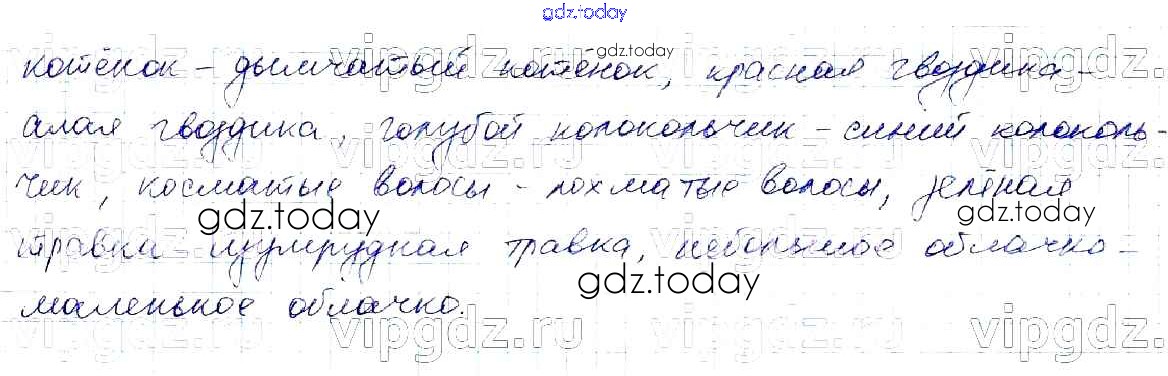 gdz.today
котёнок – дымчатый котёнок, красная гвоздика –
алая гвоздика, голубой колокольчик – синий колоколь-
чик, косматые волосы – лохматые волосы, зелёная
травка – изумрудная травка, небольшое облачко –
маленькое облачко.
gdz.today
gdz.today
gdz.today
gdz.today
vipgdz.ru
vipgdz.ru
vipgdz.ru
vipgdz.ru